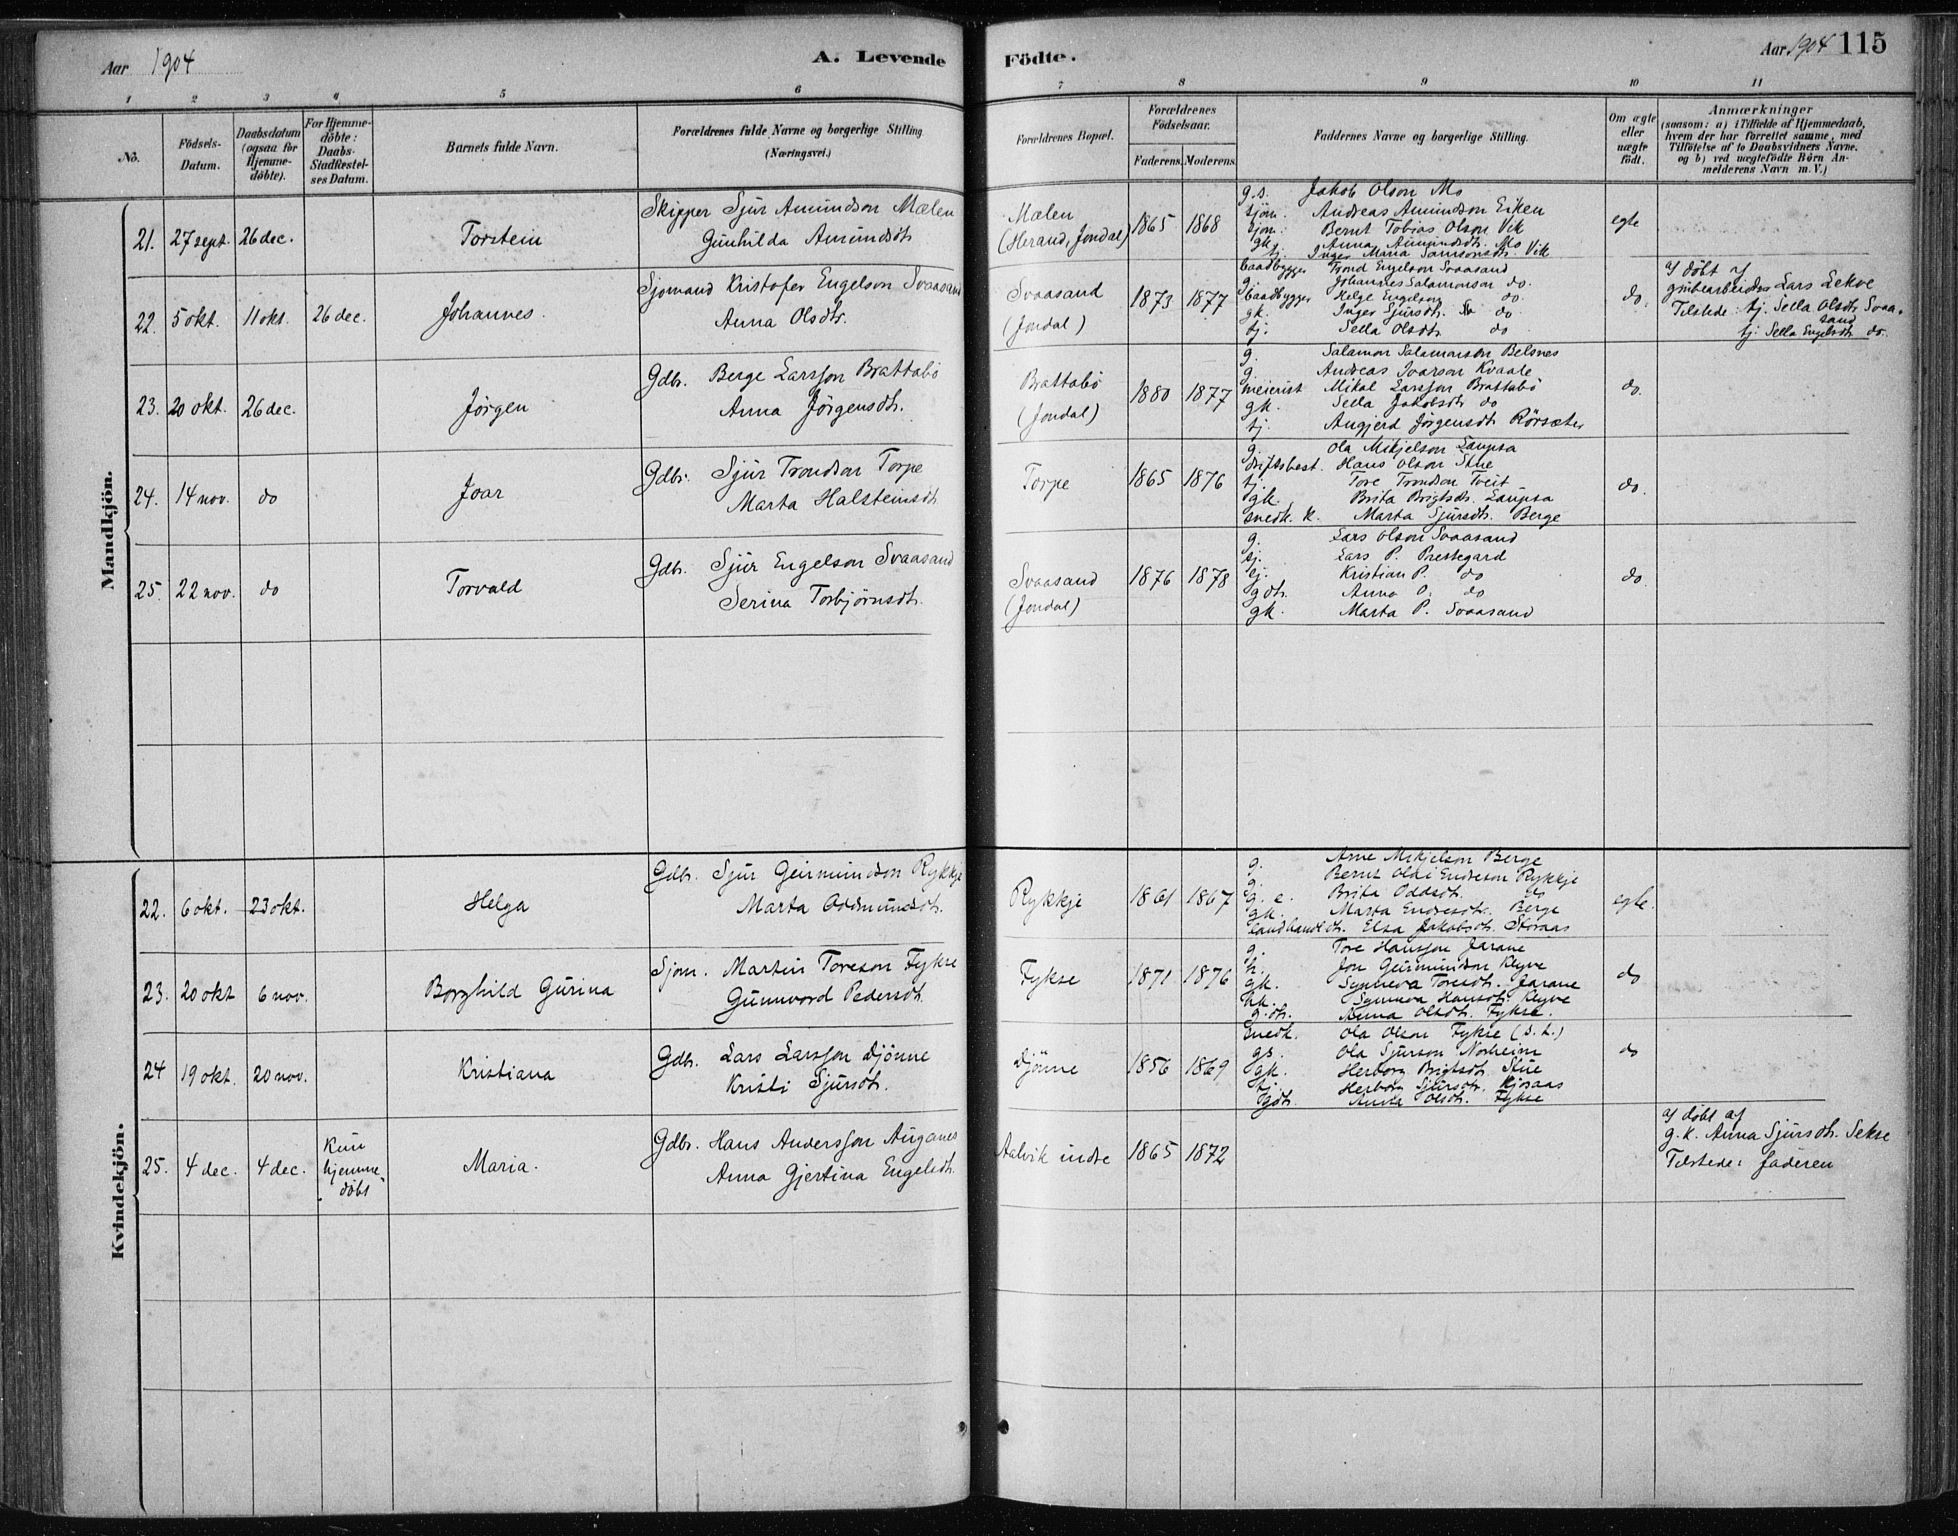 Aar 1904 A. Levende Födte. Aar 1904 115
1 2 3 4 5 6 7 8 9 10 11
No. Födsels-Datum. Daabsdatum (ogsaa for Hjemmedöbte). For Hjemmedöbte: Daabs-Stadfestelses Datum. Barnets fulde Navn. Forældrenes fulde Navne og borgerlige Stilling (Næringsvei.) Forældrenes Bopæl. Forældrenes Födselsaar. Faderens. Moderens. Faddernes Navne og borgerlige Stilling. Om ægte eller uægte födt. Anmærkninger (saasom: a) i Tilfælde af Hjemmedaab, hvem der har forrettet samme, med Tilföielse af to Daabsvidners Navne. og b) ved uægtefödte Börn Anmelderens Navn m. V.)
Mandkjön.
21. 27 sept. 26 dec. Torstein
Skipper Sjur Amundson Mælen
Gunhilda Amundsdt.
Mælen
(Herand, Jondal)
1865 1868
g.s. Jakob Olson Mo
sjøm. Andreas Amundson Eiken
sjøm. Bernt Tobias Olson Vik
gk. Anna Amundsdt. Mo
tj. Inger Maria Samsonsdt. Vik
egte
22. 5 okt. 11 okt. 26 dec. Johannes.
Sjømand Kristofer Engelson Svaasand
Anna Olsdt.
Svaasand
(Jondal)
1873 1877
baadbygger Trond Engelson Svaasand
g. Johannes Salamonson do.
baadbygger Helge Engelson do.
gk. Inger Sjursdt. do
tj. Sella Olsdt. do
do.
af døbt af
grubearbeider Lars Lekve
Tilstede: tj. Sella Olsdt. Svaasand
tj. Sella Engelsdt. do.
23. 20 okt. 26 dec. Jørgen
Gdbr. Berge Larsson Brattabø
Anna Jørgensdt.
Brattabø
(Jondal)
1880 1877
g. Salamon Salamonson Belsnes
g. Andreas Ivarson Kvaale
meierist Mikal Larsson Brattabø
gk. Sella Jakobsdt. do
tj. Angjerd Jørgensdt. Rörsæter
do.
24. 14 nov. do Joar
Gdbr. Sjur Trondson Torpe
Marta Halsteinsdt
Torpe
1865 1876
g. Ola Mikjelson Laupsa
driftsbest. Hans Olson Stue
tj. Tore Trondson Tveit
gk. Brita Brigtsdt. Laupsa
snedk. k. Marta Sjursdt. Berge
do.
25. 22 nov. do Torvald
Gdbr. Sjur Engelson Svaasand
Serina Torbjørnsdt.
Svaasand
(Jondal)
1876 1878
g. Lars Olson Svaasand
tj. Lars P. Prestegard
tj. Kristian P. do
gdt. Anna O. do
gk. Marta P. Svaasand
do.
Kvindekjön.
22. 6 okt. 23 okt. Helga
Gdbr. Sjur Geirmundson Rykkje
Marta Oddmundsdt.
Rykkje
1861 1867
g. Arne Mikjelson Berge
g. Bernt Olai Endreson Rykkje
g. e. Brita Oddsdt. do
gk. Marta Endresdt. Berge
landhandl. dt. Elsa Jakobsdt. Storaas
egte.
23. 20 okt 6 nov. Borghild Gurina
Sjøm. Martin Toreson Fykse
Gunnvord Pedersdt.
Fykse
1871 1876
g. Tore Hansson Jarane
h. Jon Geirmundson Kleyve
gk. Synneva Toresdt. Jarane
hk. Synneva Hansdt. Kleyve
g. dt. Anna Olsdt. Fykse.
do
24 19 okt. 20 nov. Kristiana
Gdbr. Lars Larsson Djønne
Kristi Sjursdt.
Djønne
1856 1869
snedk. Ola Olson Fykse (s. L.)
gs. Ola Sjurson Norheim
gk. Herborg Brigtsdt. Stue
tj. Herborg Sjursdt. Kjosaas
gdt. Anna Olsdt. Fykse
do
25. 4 dec. 4 dec. Kun hjemmedøbt Maria.
Gdbr. Hans Andersson Auganes
Anna Gjertina Engelsdt.
Aalvik indre
1865 1872
af døbt af
g. k. Anna Sjursdt. Sekse
Tilstede: faderen